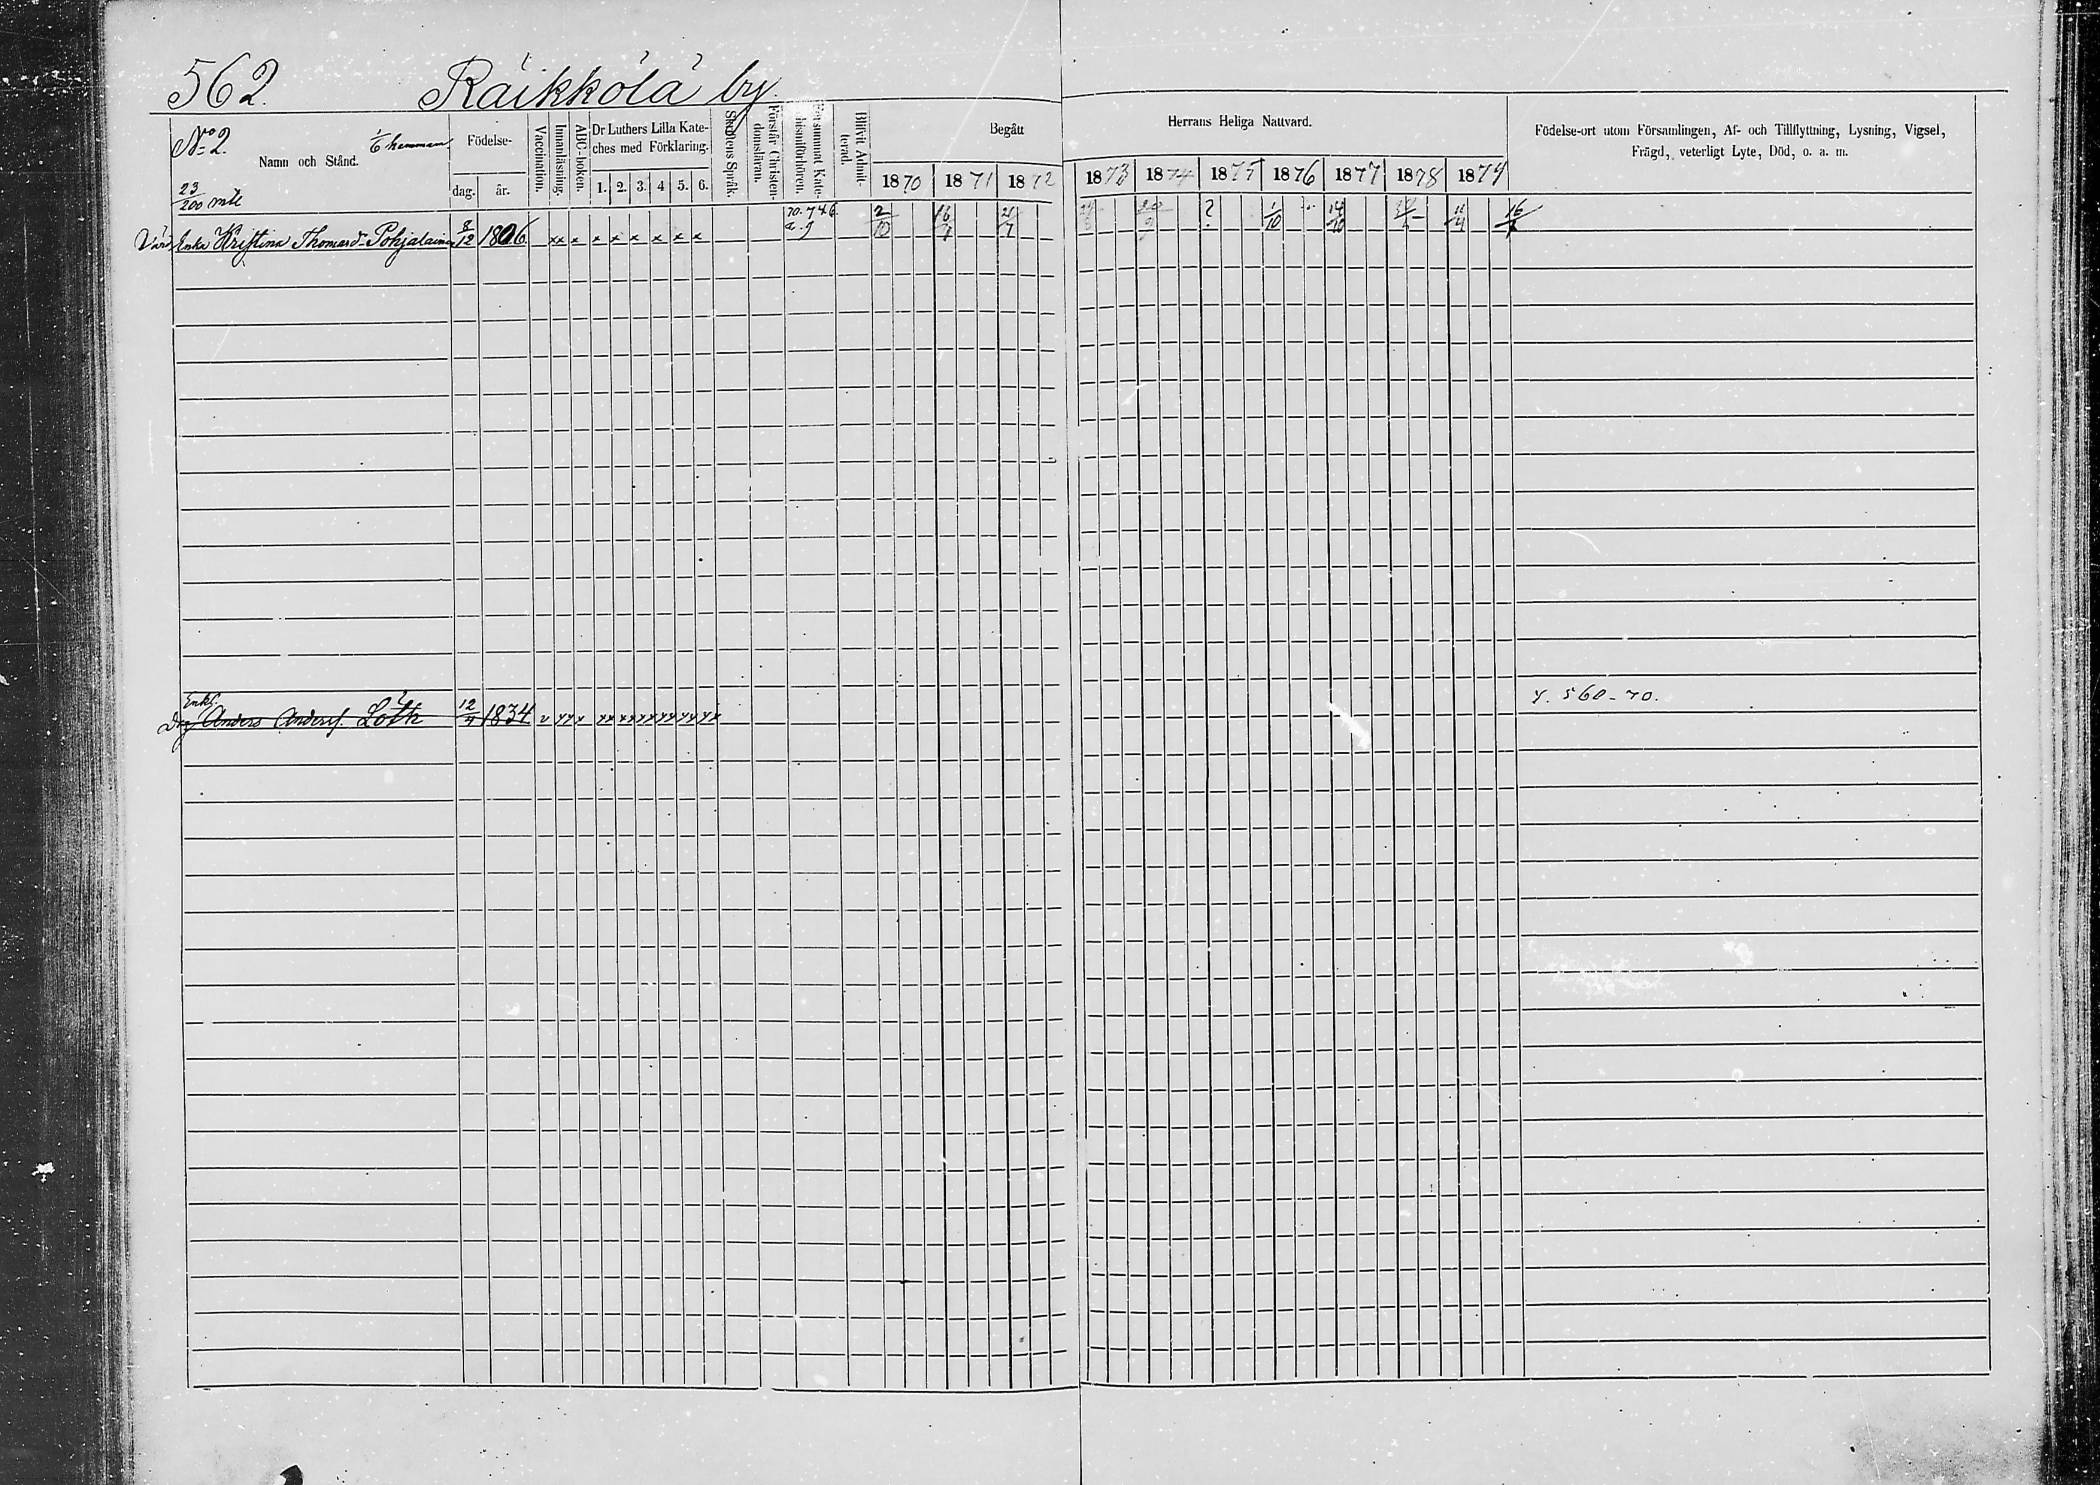 562.
Räikkölä by.
No 2.
Namn och Stånd.
Födelse-
dag.
år.
Vaccination.
Innanläsning.
ABC-boken.
Dr Luthers Lilla Kate-
ches med Förklaring.
1. 2. 3. 4 5. 6.
Skriftens Språk.
Förstår Christen-
domsläran.
Blifvit Admit-
terad.
Begått
Herrans Heliga Nattvard.
1870 1871 1872 1873 1874 1875 1876 1877 1878 1879
Födelse-ort utom Församlingen, Af- och Tillflyttning, Lysning, Vigsel,
Frägd, veterligt Lyte, Död, o. a. m.
23/200 mtl
Enka Kristina Thomasdr Pohjalainen 8/12 1806 xx x x x x x x x 70. 7 4 6. 2/10 ? 1/10 14/10 11/4
a. 9
Enkl.
Anders Andersf. Löth 12/4 1834
y. 560-70.